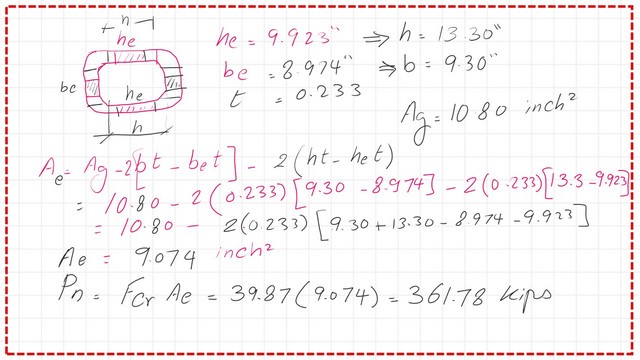 h
he
he = 9.923" ⇒ h = 13.30"
be
be = 8.974" ⇒ b = 9.30"
he
t = 0.233
h
Ag = 10.80 inch²
Ae = Ag - 2[bt - bet] - 2(ht - het)
= 10.80 - 2(0.233)[9.30 - 8.974] - 2(0.233)[13.3 - 9.923]
= 10.80 - 2(0.233)[9.30 + 13.30 - 8.974 - 9.923]
Ae = 9.074 inch²
Pn = Fcr Ae = 39.87(9.074) = 361.78 kips